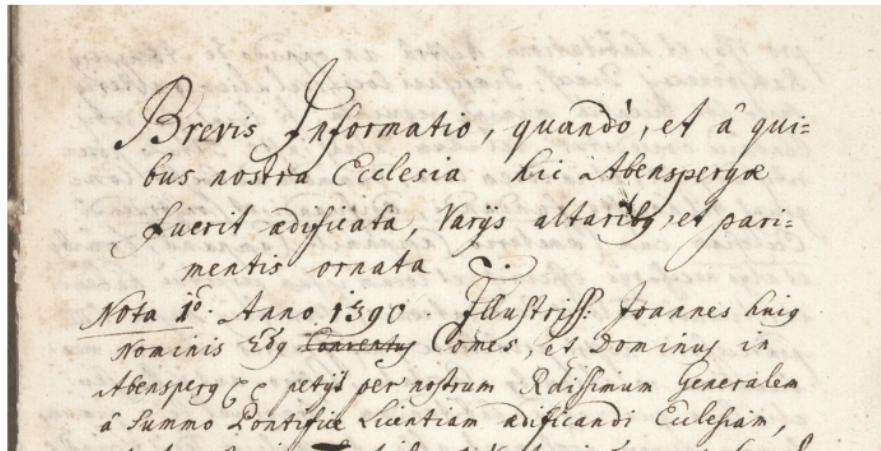 Brevis Informatio, quandò, et â qui=
bus nostra Ecclesia hic Abenspergæ
fuerit ædificata, Varijs altaribq, et pari=
mentis ornata
Nota 1º. Anno 1390. Illustriss: Joannes huig
Nominis Comes, et Dominus in
Abensperg petijt per nostrum Rdissimum Generalem
â Summo Pontifice Licentiam ædificandi Ecclesiam,